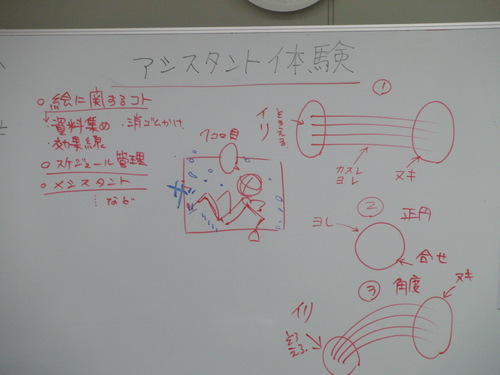 アシスタント体験
○ 絵に関するコト
・資料集め ・消ゴムかけ
・効果線
○ スケジュール管理
○ メシスタント
…など
1コマ目
①
イリ
ヌキ
カスレ
ヨレ
② 正円
ヨレ
合せ
③ 角度
イリ
ヌキ